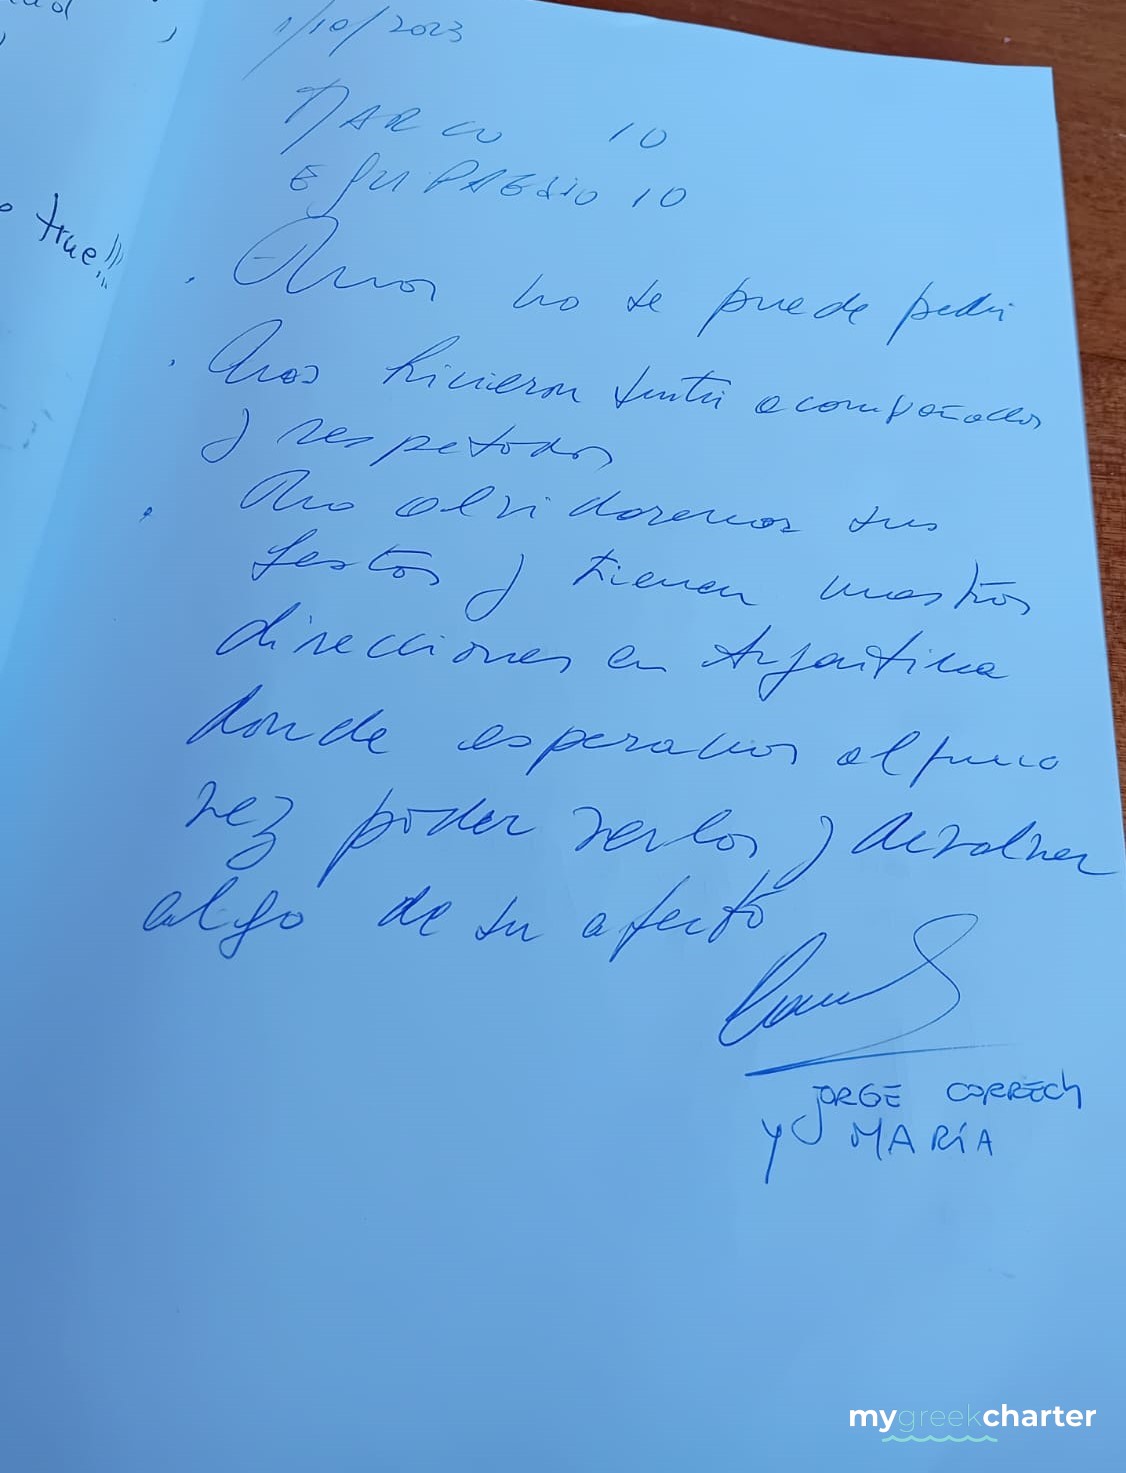 true!!!
1/10/2023
MARCO 10
10
. Mas no se puede pedir
. Nos hicieron sentir acompañados
y respetados
. No olvidaremos sus
gestos y tienen nuestras
direcciones en Argentina
donde esperamos alguna
vez poder verlos y devolver
algo de su afecto
JORGE CORRECH
Y MARÍA
mygreekcharter